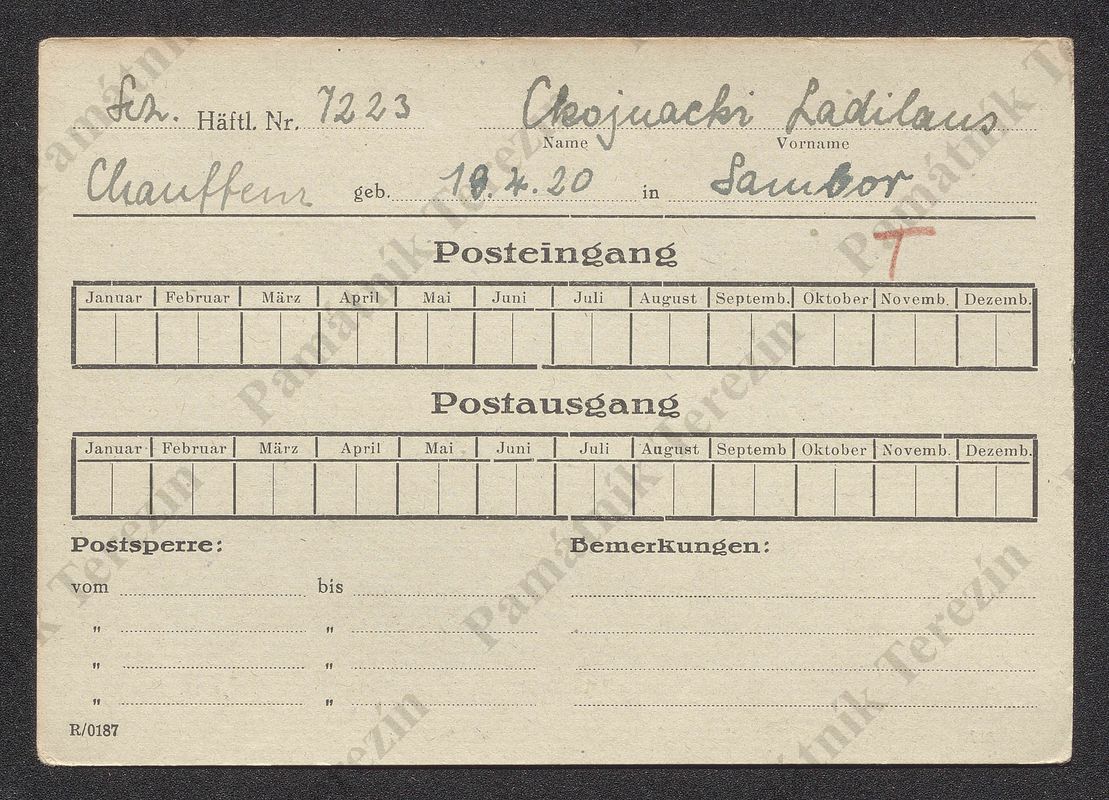 Sch. Häftl. Nr. 7223 Ckojnacki Ladilaus
Name Vorname
Chauffeur geb. 19.4.20 in Sambor
T
Posteingang
Januar Februar März April Mai Juni Juli August Septemb. Oktober Novemb. Dezemb.
Postausgang
Januar Februar März April Mai Juni Juli August Septemb Oktober Novemb. Dezemb.
Postsperre: Bemerkungen:
vom bis
" "
" "
" "
R/0187
Památník Terezín